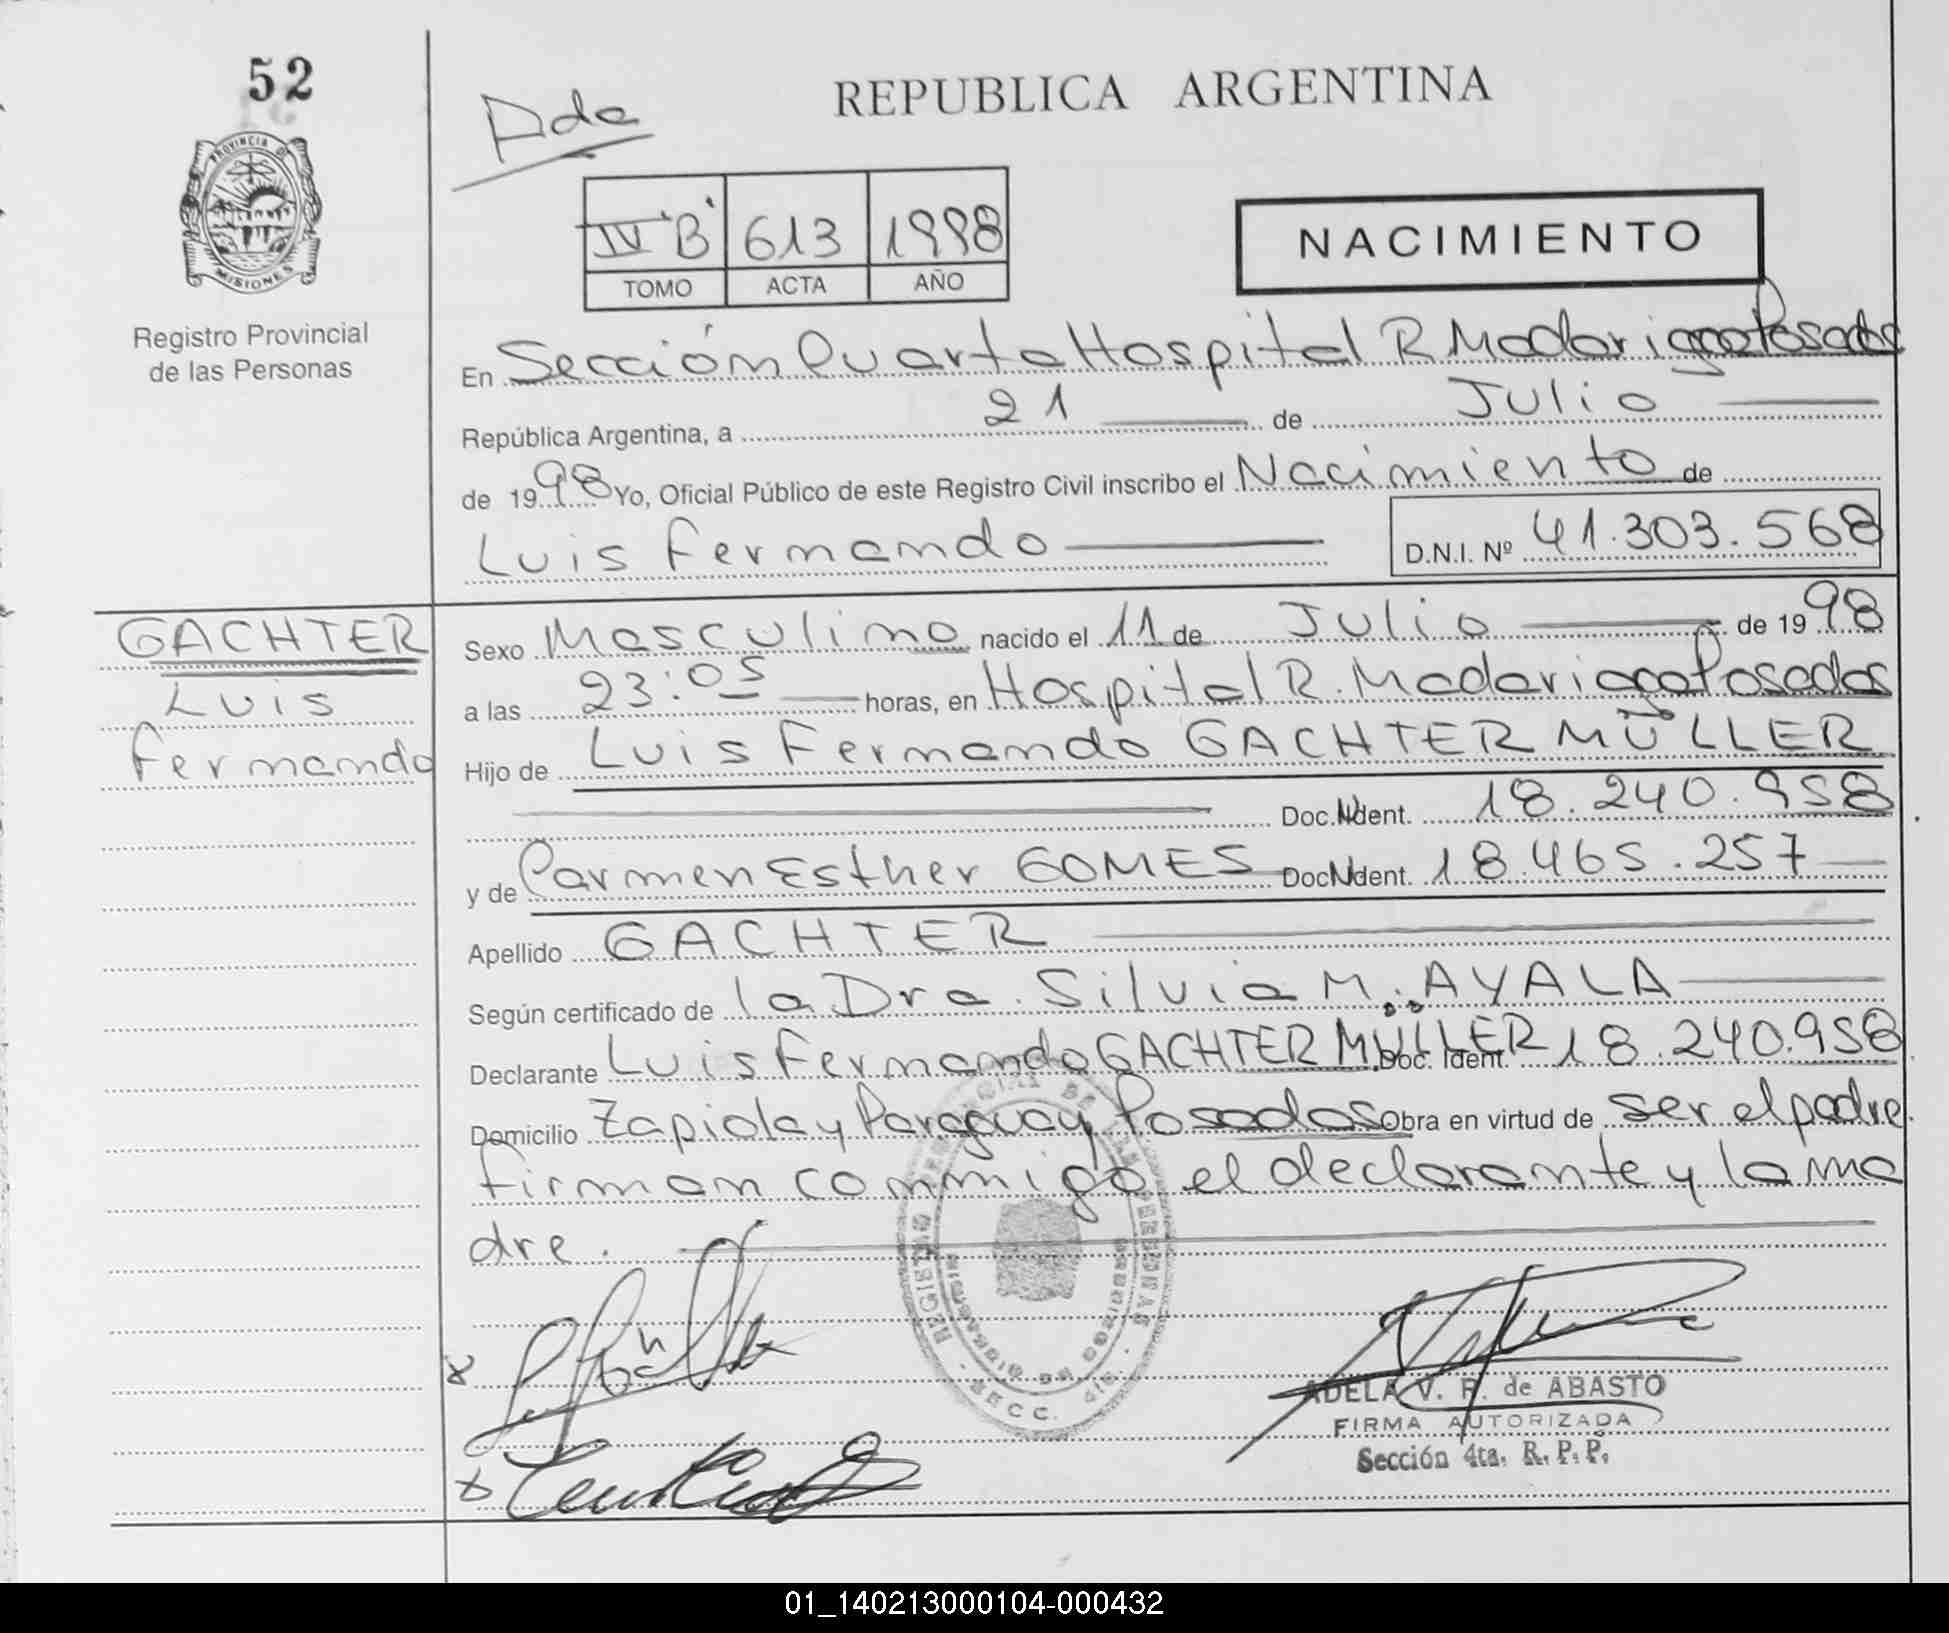 52
Ada
REPUBLICA ARGENTINA
PROVINCIA DE
MISIONES
IV "B" 613 1998
TOMO ACTA AÑO
NACIMIENTO
Registro Provincial
de las Personas
En Sección Cuarta Hospital R Madariaga Posadas
República Argentina, a 21 de Julio
de 1998 Yo, Oficial Público de este Registro Civil inscribo el Nacimiento de
Luis Fernando D.N.I. Nº 41.303.568
GACHTER
Luis
Fernando
Sexo Masculino nacido el 11 de Julio de 1998
a las 23:05 horas, en Hospital R. Madariaga Posadas
Hijo de Luis Fernando GACHTER MÜLLER
Doc. Ident. 18.240.958
y de Carmen Esther GOMES Doc. Ident. 18.465.257
Apellido GACHTER
Según certificado de la Dra. Silvia M. AYALA
Declarante Luis Fernando GACHTER MÜLLER Doc. Ident. 18.240.958
Domicilio Zapiola y Paraguay Posadas Obra en virtud de ser el padre.
firman conmigo el declarante y la ma
dre.
REGISTRO PROVINCIAL DE LAS PERSONAS
SECC. 4ta.
ADELA V. R. de ABASTO
FIRMA AUTORIZADA
Sección 4ta. R. P. P.
01_140213000104-000432